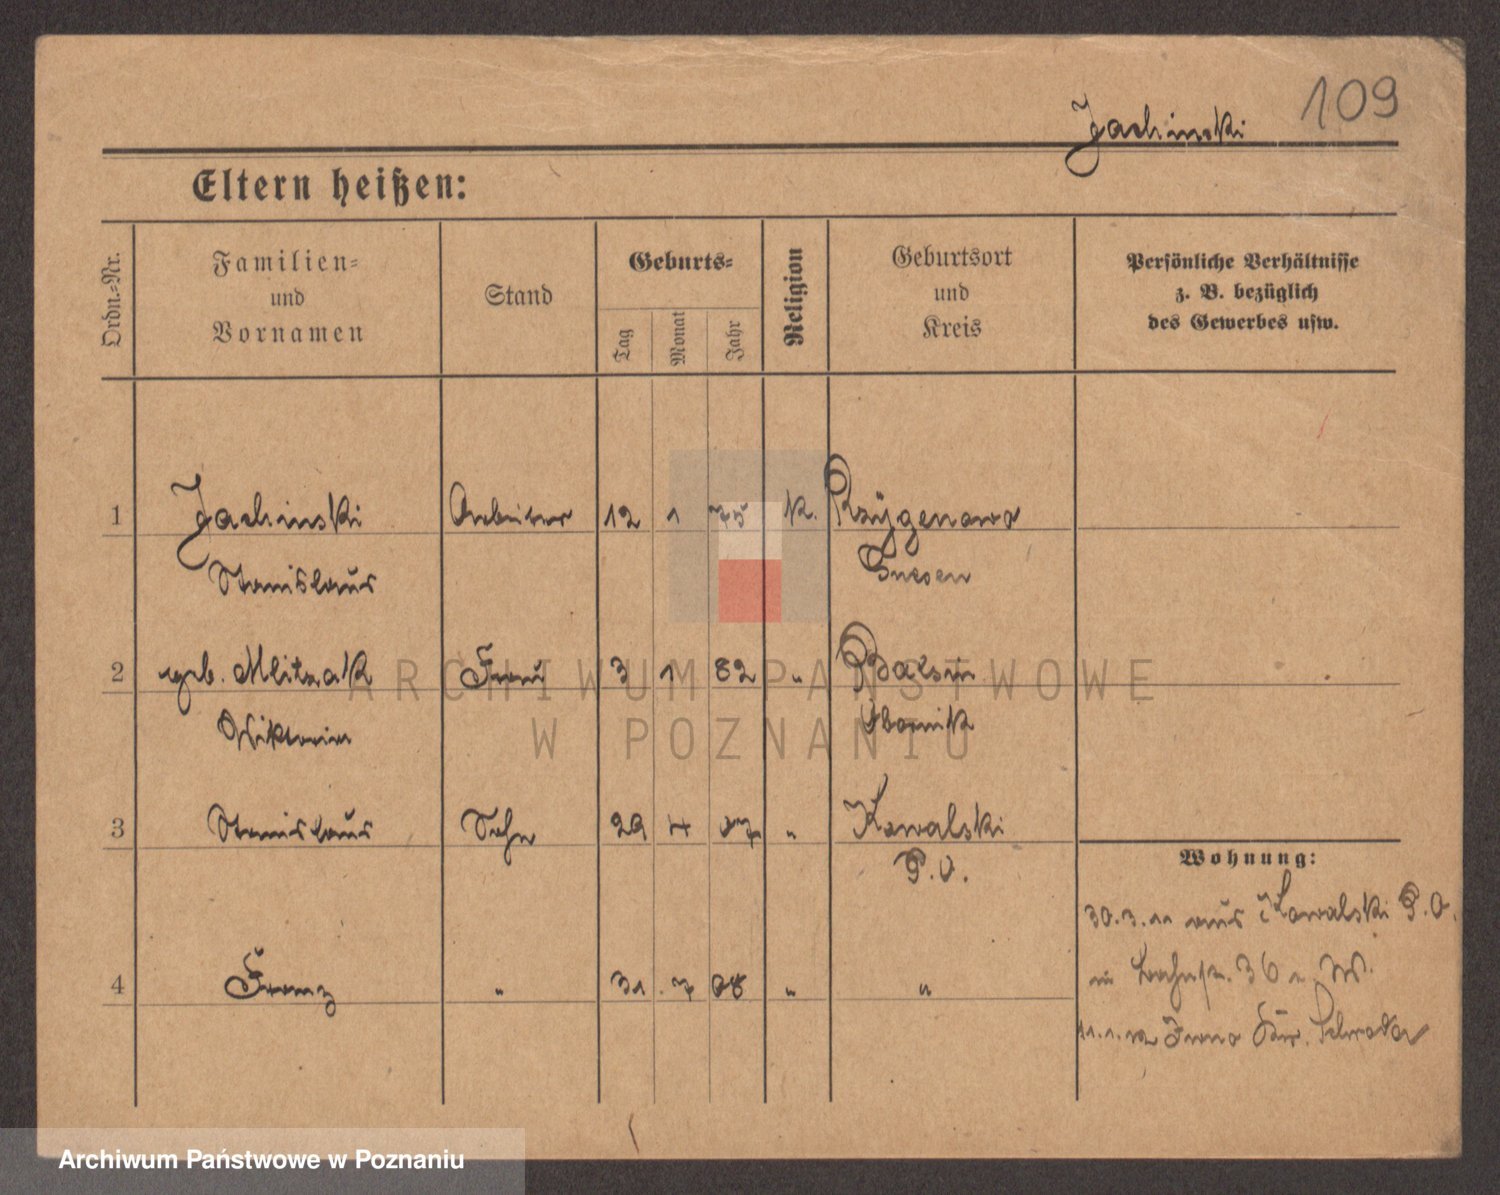 109
Jachinski
Eltern heißen:
Ordn.=Nr.
Familien=
und
Vornamen
Stand
Geburts=
Tag
Monat
Jahr
Religion
Geburtsort
und
Kreis
Persönliche Verhältnisse
z. B. bezüglich
des Gewerbes usw.
1 Jachinski Arbeiter 12 1 75 k.
Stanislaus Gnesen
2 geb. Mlitzak Frau 3 1 82 "
Wiktoria Obornik
3 Stanislaus Sohn 29 4 07 " Kowalski
P.O.
Wohnung:
30.3.11 aus Kowalski P.O.
4 Franz " 31. 7 08 " "
in Bahnstr. 36 a W.
11.1.12
ARCHIWUM PAŃSTWOWE
W POZNANIU
Archiwum Państwowe w Poznaniu